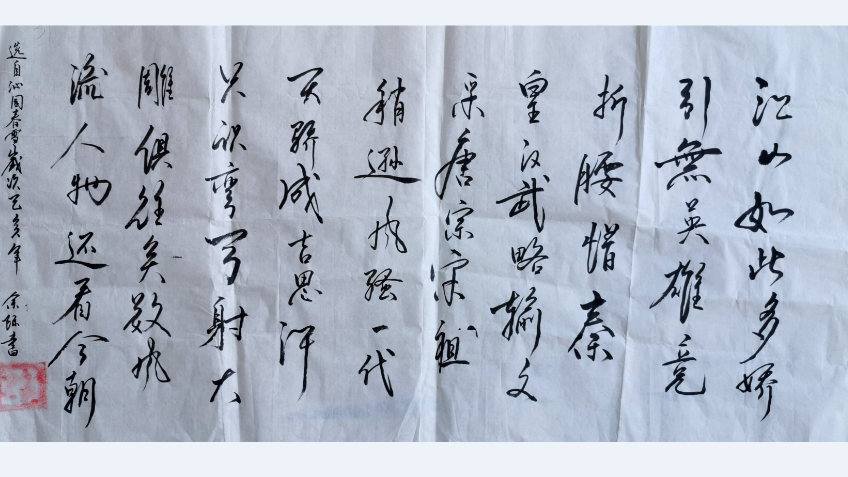 江山如此多娇
引無英雄竞
折腰惜秦
皇汉武略输文
采唐宗宋祖
稍逊风骚一代
天骄成吉思汗
只识弯弓射大
雕俱往矣数风
流人物还看今朝
选自沁园春雪歲次己亥年 余书